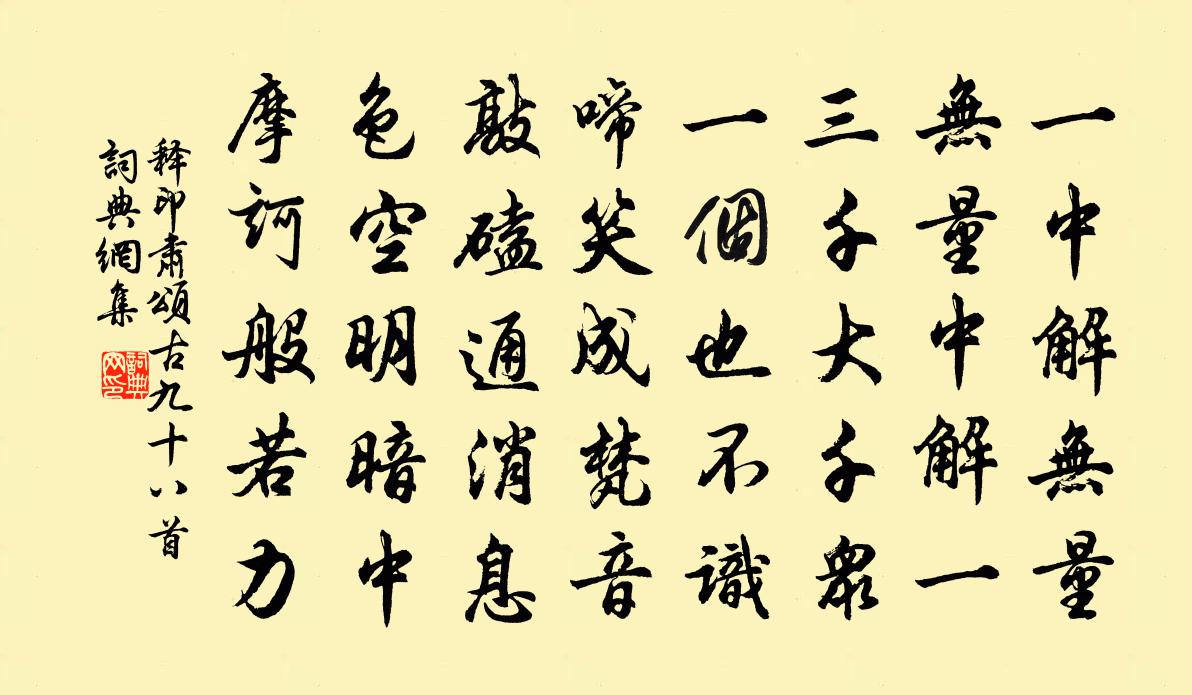 一中解無量
無量中解一
三千大千衆
一個也不識
啼笑成梵音
敲磕通消息
色空明暗中
摩訶般若力
释印肅頌古九十八首
詞典網集
詞典网印